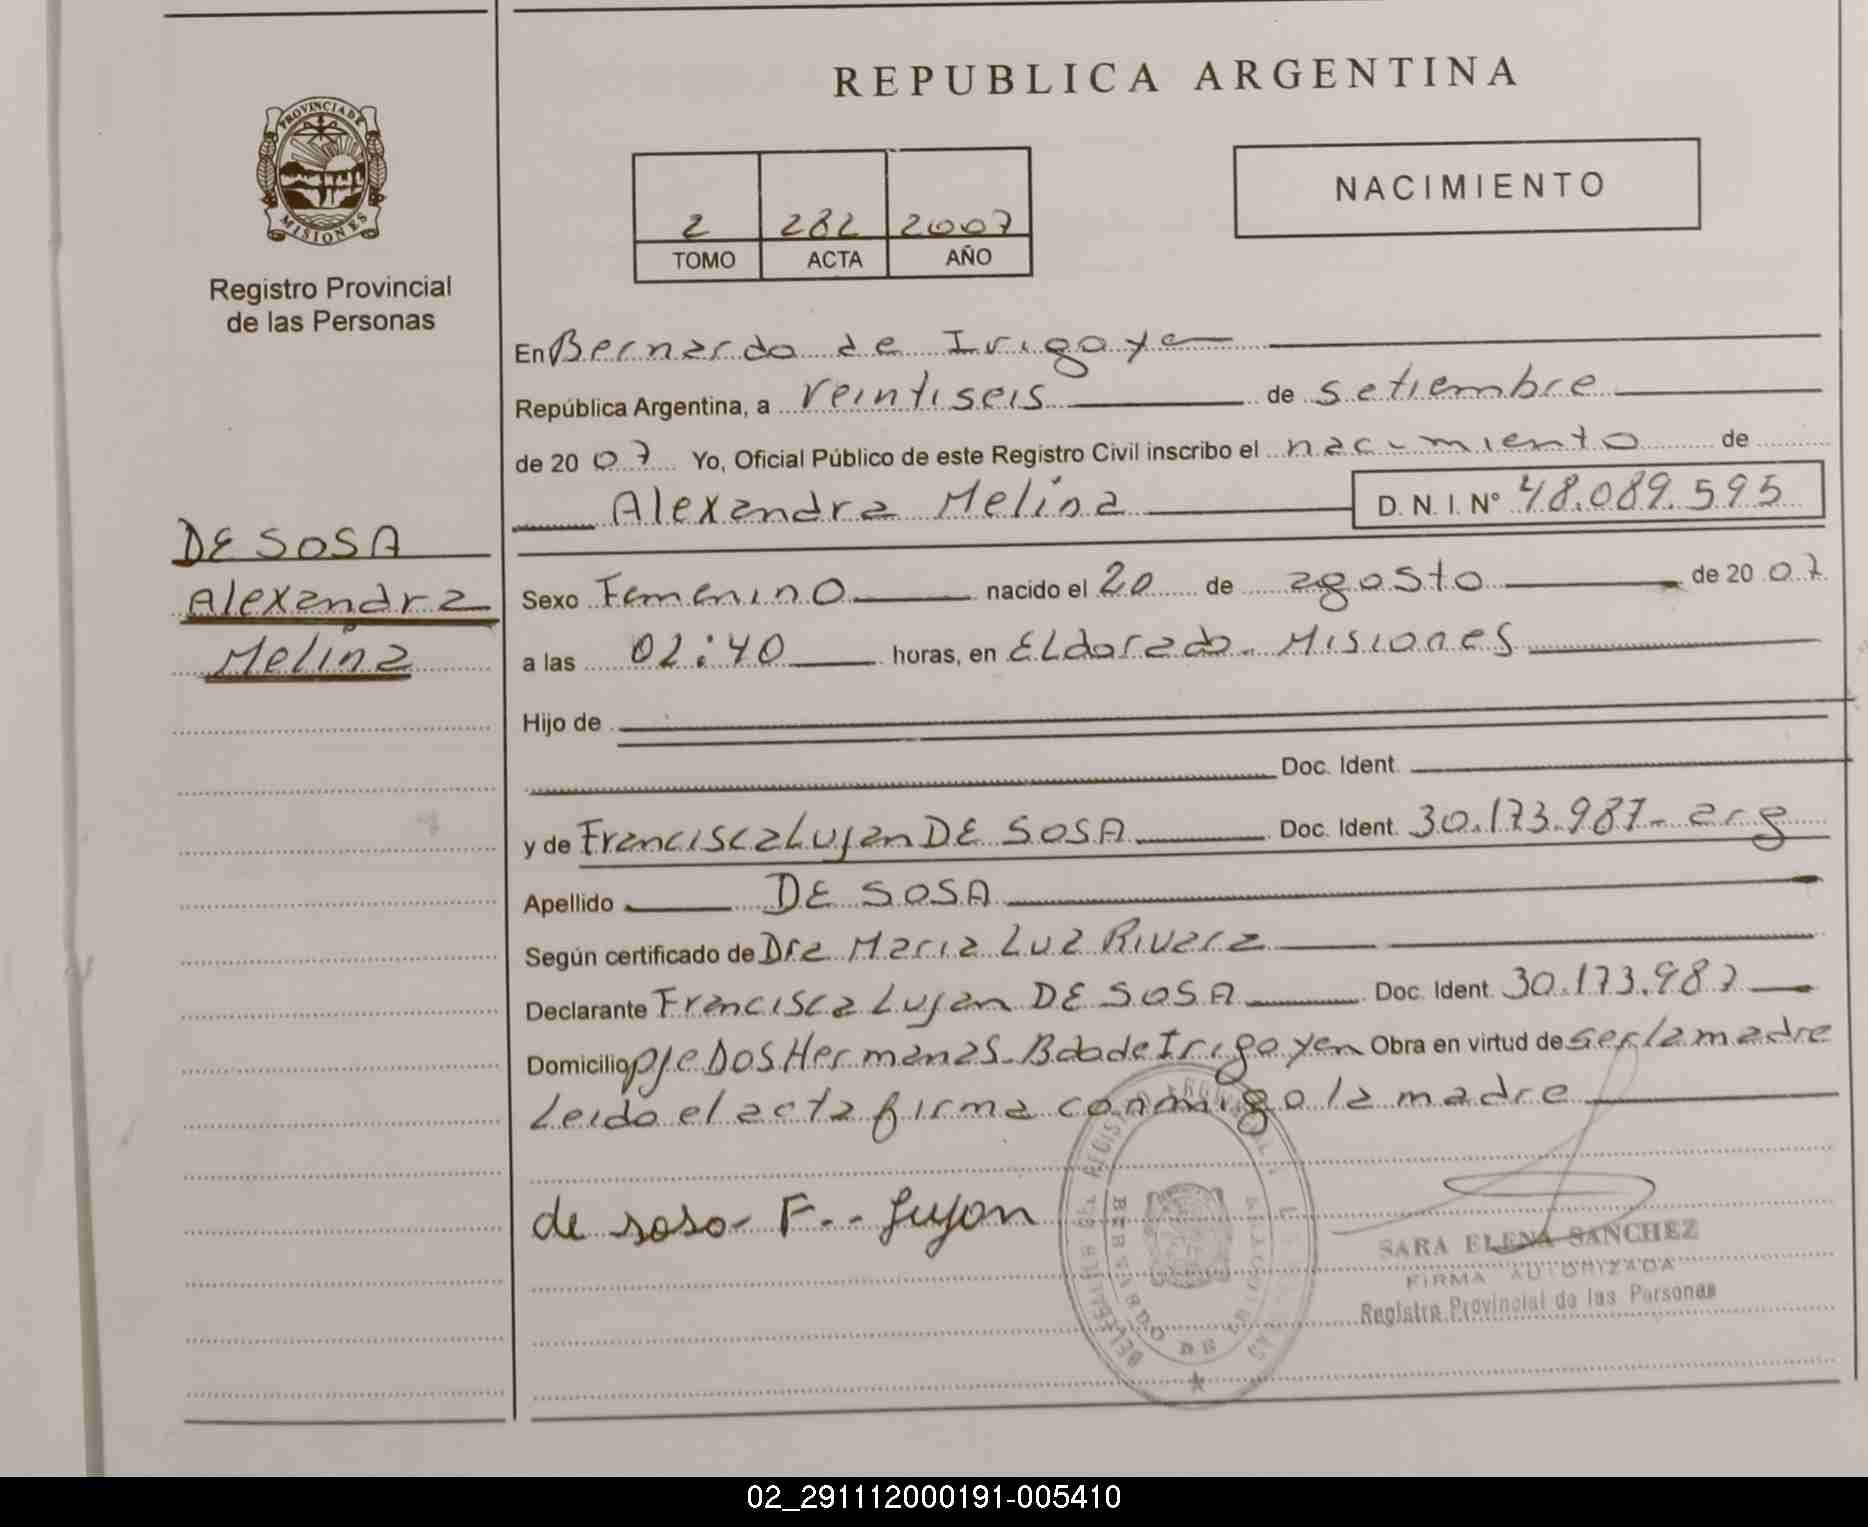 REPUBLICA ARGENTINA
PROVINCIA DE
MISIONES
Registro Provincial
de las Personas
NACIMIENTO
2 282 2007
TOMO ACTA AÑO
En Bernardo de Irigoye
República Argentina, a Veintiseis de setiembre
de 20 07 Yo, Oficial Público de este Registro Civil inscribo el nacimiento de
Alexandra Melina D. N. I. Nº 48.089.595
DE SOSA
Alexandra
Melina
Sexo Femenino nacido el 20 de agosto de 20 07
a las 02:40 horas, en ELdorado. Misiones
Hijo de
Doc. Ident.
y de Francisca Lujan DE SOSA Doc. Ident. 30.173.987- arg
Apellido DE SOSA
Según certificado de Dra Maria Luz Rivera
Declarante Francisca Lujan DE SOSA Doc. Ident. 30.173.987
Domicilio pje Dos Hermanas. Bdo de Irigoyen Obra en virtud de ser la madre
Leido el acta firma conmigo la madre
de sosa- F.. Lujan
BERNARDO DE
SARA ELENA SANCHEZ
FIRMA AUTORIZADA
Registro Provincial de las Personas
02_291112000191-005410